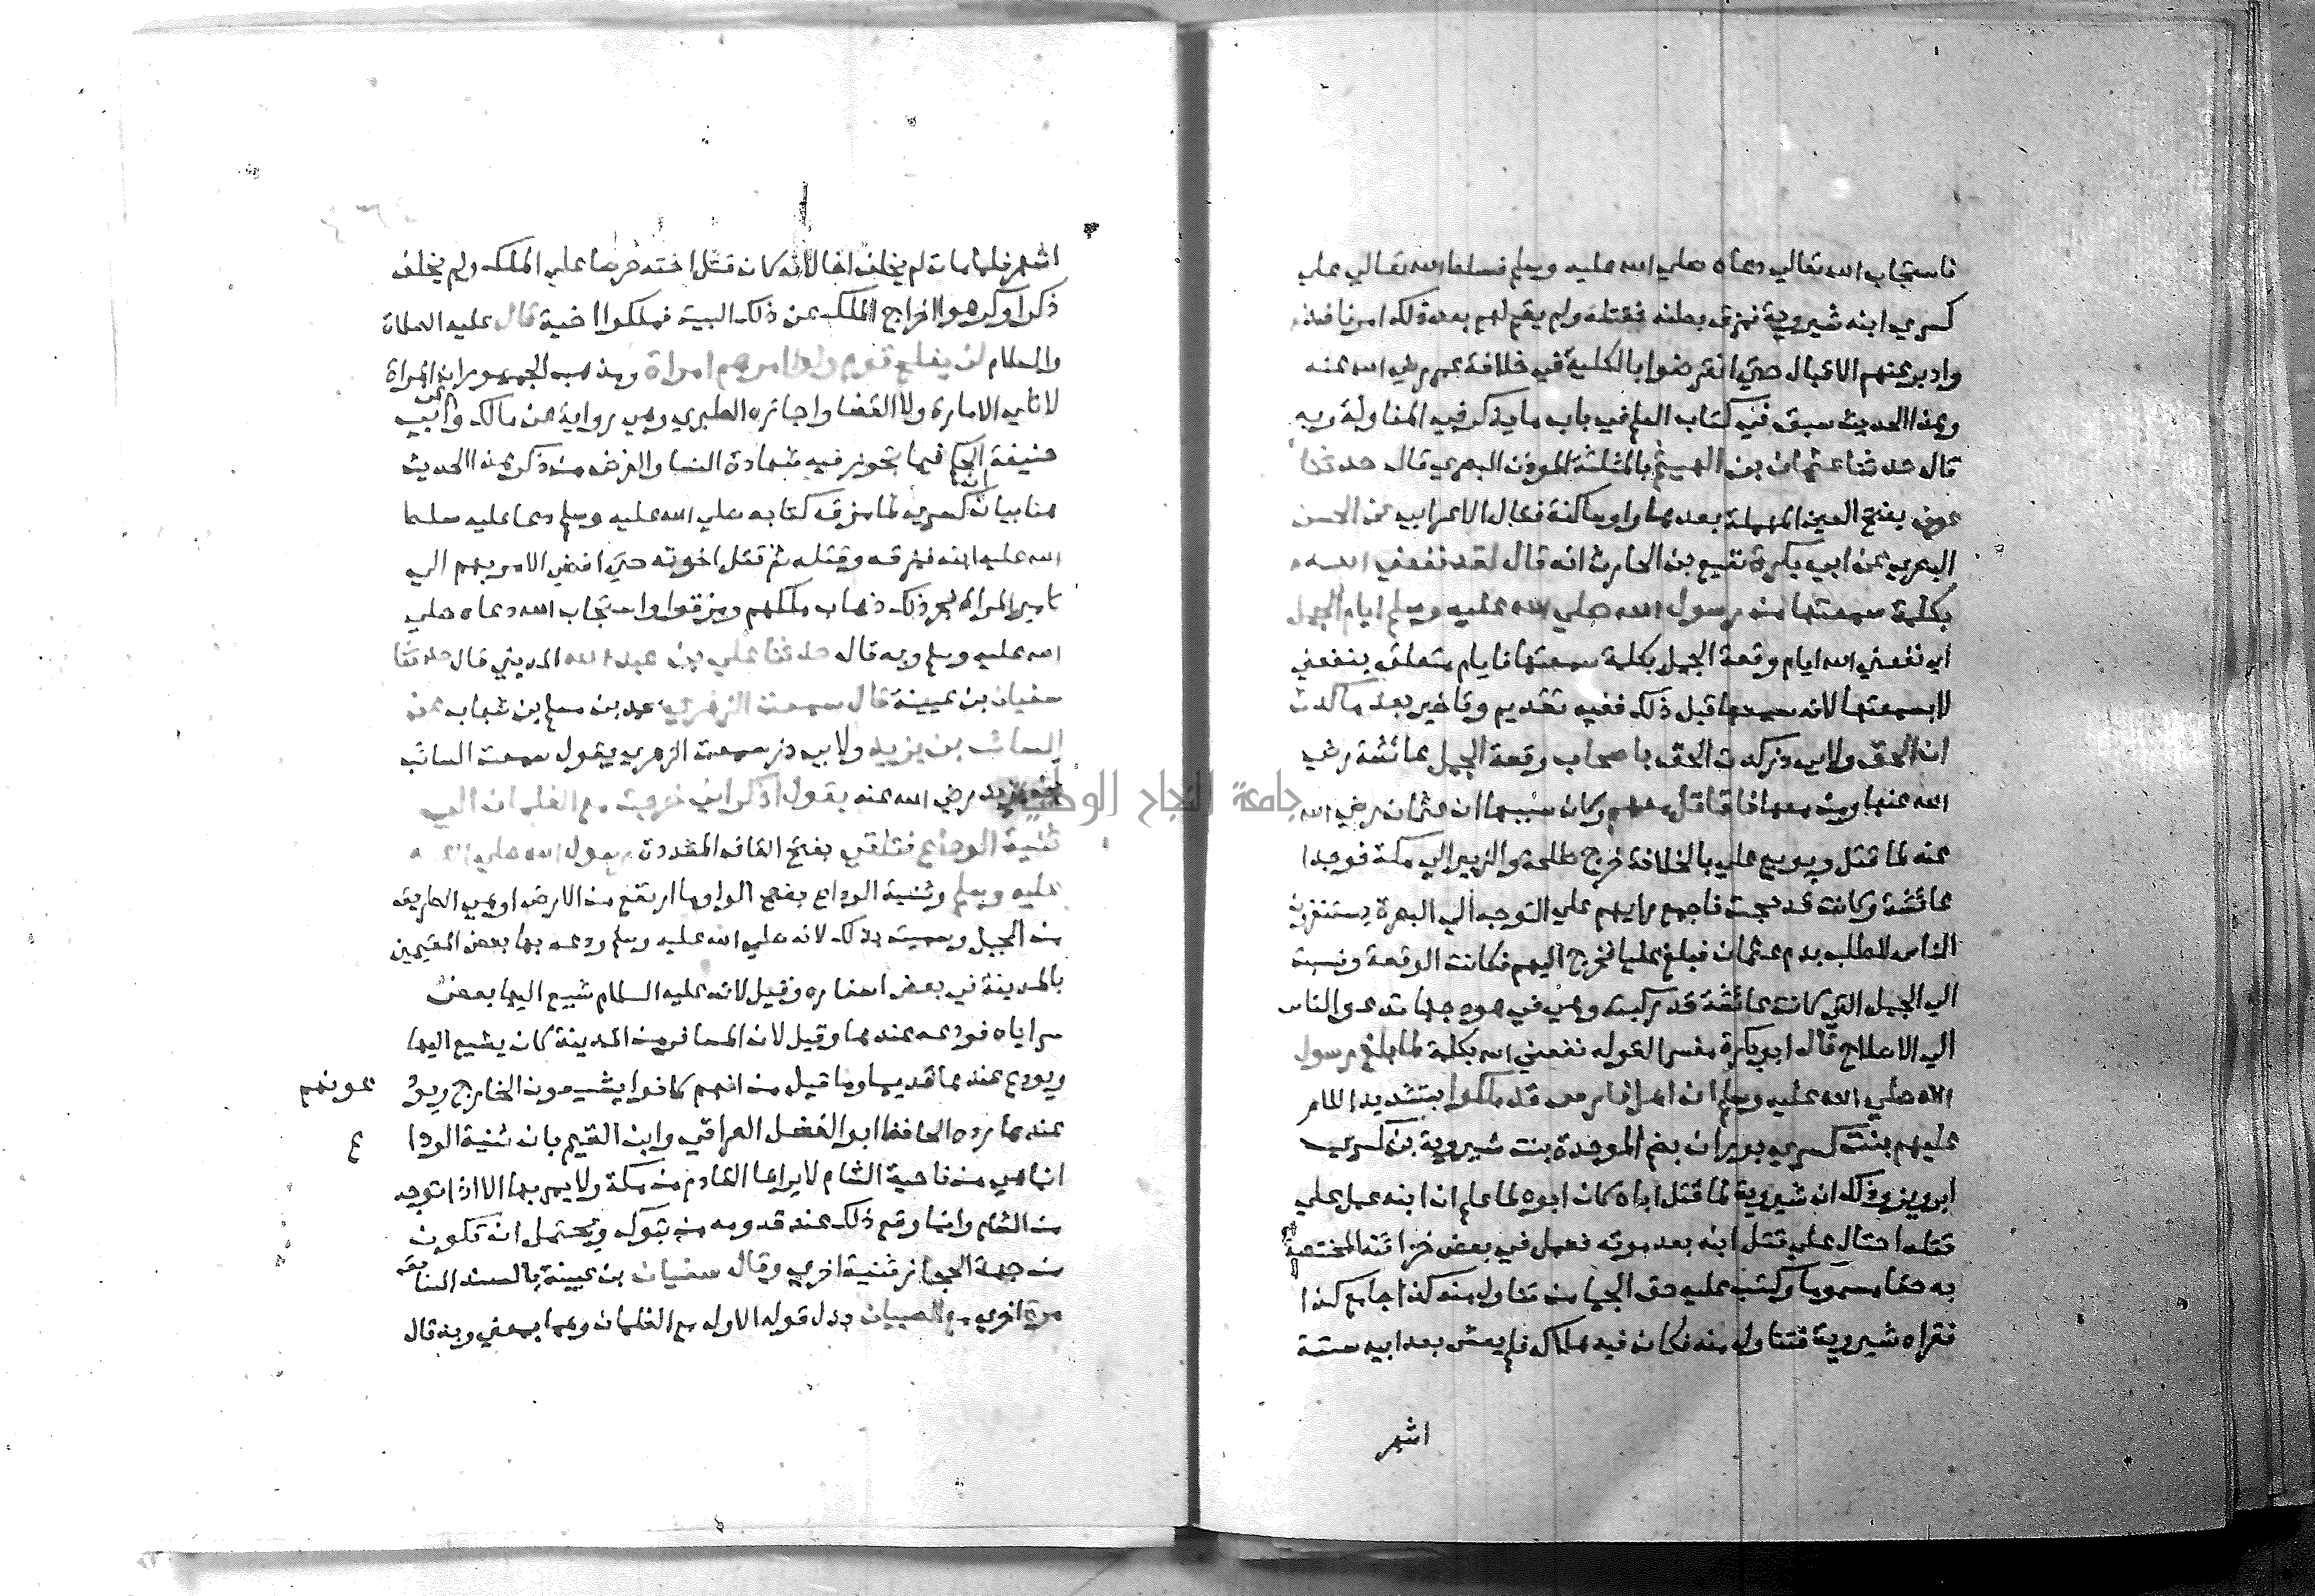 فاستجاب الله تعالي دعاه صلي الله عليه وسلم فسلط الله تعالي علي
كسري ابنه شيروية فمزق بطنه فقتله ولم يقم لهم بعد ذلك امر نافذ
وادبر عنهم الاقبال حتي انقرضوا بالكلية في خلافة عمر رضي الله عنه
وهذا الحديث سبق في كتاب العلم في باب ما يذكر في المناولة وبه
قال حدثنا عثمان بن الهيثم بالمثلثة الموذن البصري قال حدثنا
عوف بفتح العين المهملة بعدها واو ساكنة ففاء الاعرابي عن الحسن
البصري عن ابي بكرة نفيع بن الحارث انه قال لقد نفعني الله
بكلمة سمعتها من رسول الله صلي الله عليه وسلم ايام الجمل
اي نفعني الله ايام وقعة الجمل بكلمة سمعتها فايام متعلق بنفعني
لا بسمعتها لانه سمعها قبل ذلك ففيه تقديم وتاخير بعد ما كدت
ان الحق ولابي ذر كدت الحق باصحاب وقعة الجمل عائشة رضي
الله عنها ومن معها فاقاتل معهم وكان سببها ان عثمان رضي الله
عنه لما قتل وبويع علي بالخلافة خرج طلحة والزبير الي مكة فوجدا
عائشة وكانت قد حجت فاجمع رايهم علي التوجه الي البصرة يستنفرون
الناس للطلب بدم عثمان فبلغ عليا فخرج اليهم فكانت الوقعة ونسبت
الي الجمل التي كانت عائشة قد ركبته وهي في هودجها تدعو الناس
الي الاصلاح قال ابو بكرة مفسرا لقوله نفعني الله بكلمة لما بلغ رسول
الله صلي الله عليه وسلم ان اهل فارس قد ملكوا بتشديد اللام
عليهم بنت كسري بوران بضم الموحدة بنت شيروية بن كسري
ابرويز وذلك ان شيروية لما قتل اباه كان ابوه لما علم ان ابنه عمل علي
قتله احتال علي قتل ابنه بعد موته فعمل في بعض خزائنه المختصة
به حقا مسموما وكتب عليه حق الجماع من تناول منه كذا جامع كذا
فقراه شيروية فتناول منه فكان فيه هلاكه فلم يعش بعد ابيه ستة
اشهر
اشهر فلما مات لم يخلف اخا لانه كان قتل اخته حرصا علي الملك ولم يخلف
ذكرا وكرهوا اخراج الملك عن ذلك البيت فملكوا اخية قال عليه الصلاة
والسلام لن يفلح قوم ولوا امرهم امراة ومذهب الجمهور ان المراة
لا تلي الامارة ولا القضا واجازه الطبري وهي رواية عن مالك وعن ابي
حنيفة الحكم فيما تجوز فيه شهادة النسا والغرض من ذكر هذا الحديث
هنا بيان ان كسري لما مزق كتابه صلي الله عليه وسلم دعا عليه سلط
الله عليه ابنه فمزقه وقتله ثم قتل اخوته حتي افضي الامر بهم الي
تامير المراة فجر ذلك ذهاب ملكهم ومزقوا واستجاب الله دعاه صلي
الله عليه وسلم وبه قال حدثنا علي بن عبد الله المديني قال حدثنا
سفيان بن عيينة قال سمعت الزهري محمد بن مسلم بن شهاب عن
السائب بن يزيد ولابي ذر سمعت الزهري يقول سمعت السائب
بن يزيد رضي الله عنه يقول اذكر اني خرجت مع الغلمان الي
ثنية الوداع فتلقي بفتح القاف المشددة رسول الله صلي الله
عليه وسلم وثنية الوداع بفتح الواو ما ارتفع من الارض او هي الطريق
من الجبل وسميت بذلك لانه صلي الله عليه وسلم ودعه بها بعض المقيمين
بالمدينة في بعض اسفاره وقيل لانه عليه السلام شيع اليها بعض
سراياه فودعه عندها وقيل لان المسافر من المدينة كان يشيع اليها
ويودع عندها قديما وما قيل من انهم كانوا يشيعون الخارج ويودعونهم
عندها رده الحافظ ابو الفضل العراقي وابن القيم بان ثنية الوداع
انما هي من ناحية الشام لا يراها القادم من مكة ولا يمر بها الا اذا توجه
من الشام وانما وقع ذلك عند قدومه من تبوك ويحتمل ان تكون
من جهة الحجاز ثنية اخري وقال سفيان بن عيينة بالسند السابق
مرة اخري مع الصبيان بدل قوله الاول مع الغلمان وهما بمعني وبه قال
جامعة النجاح الوطنية